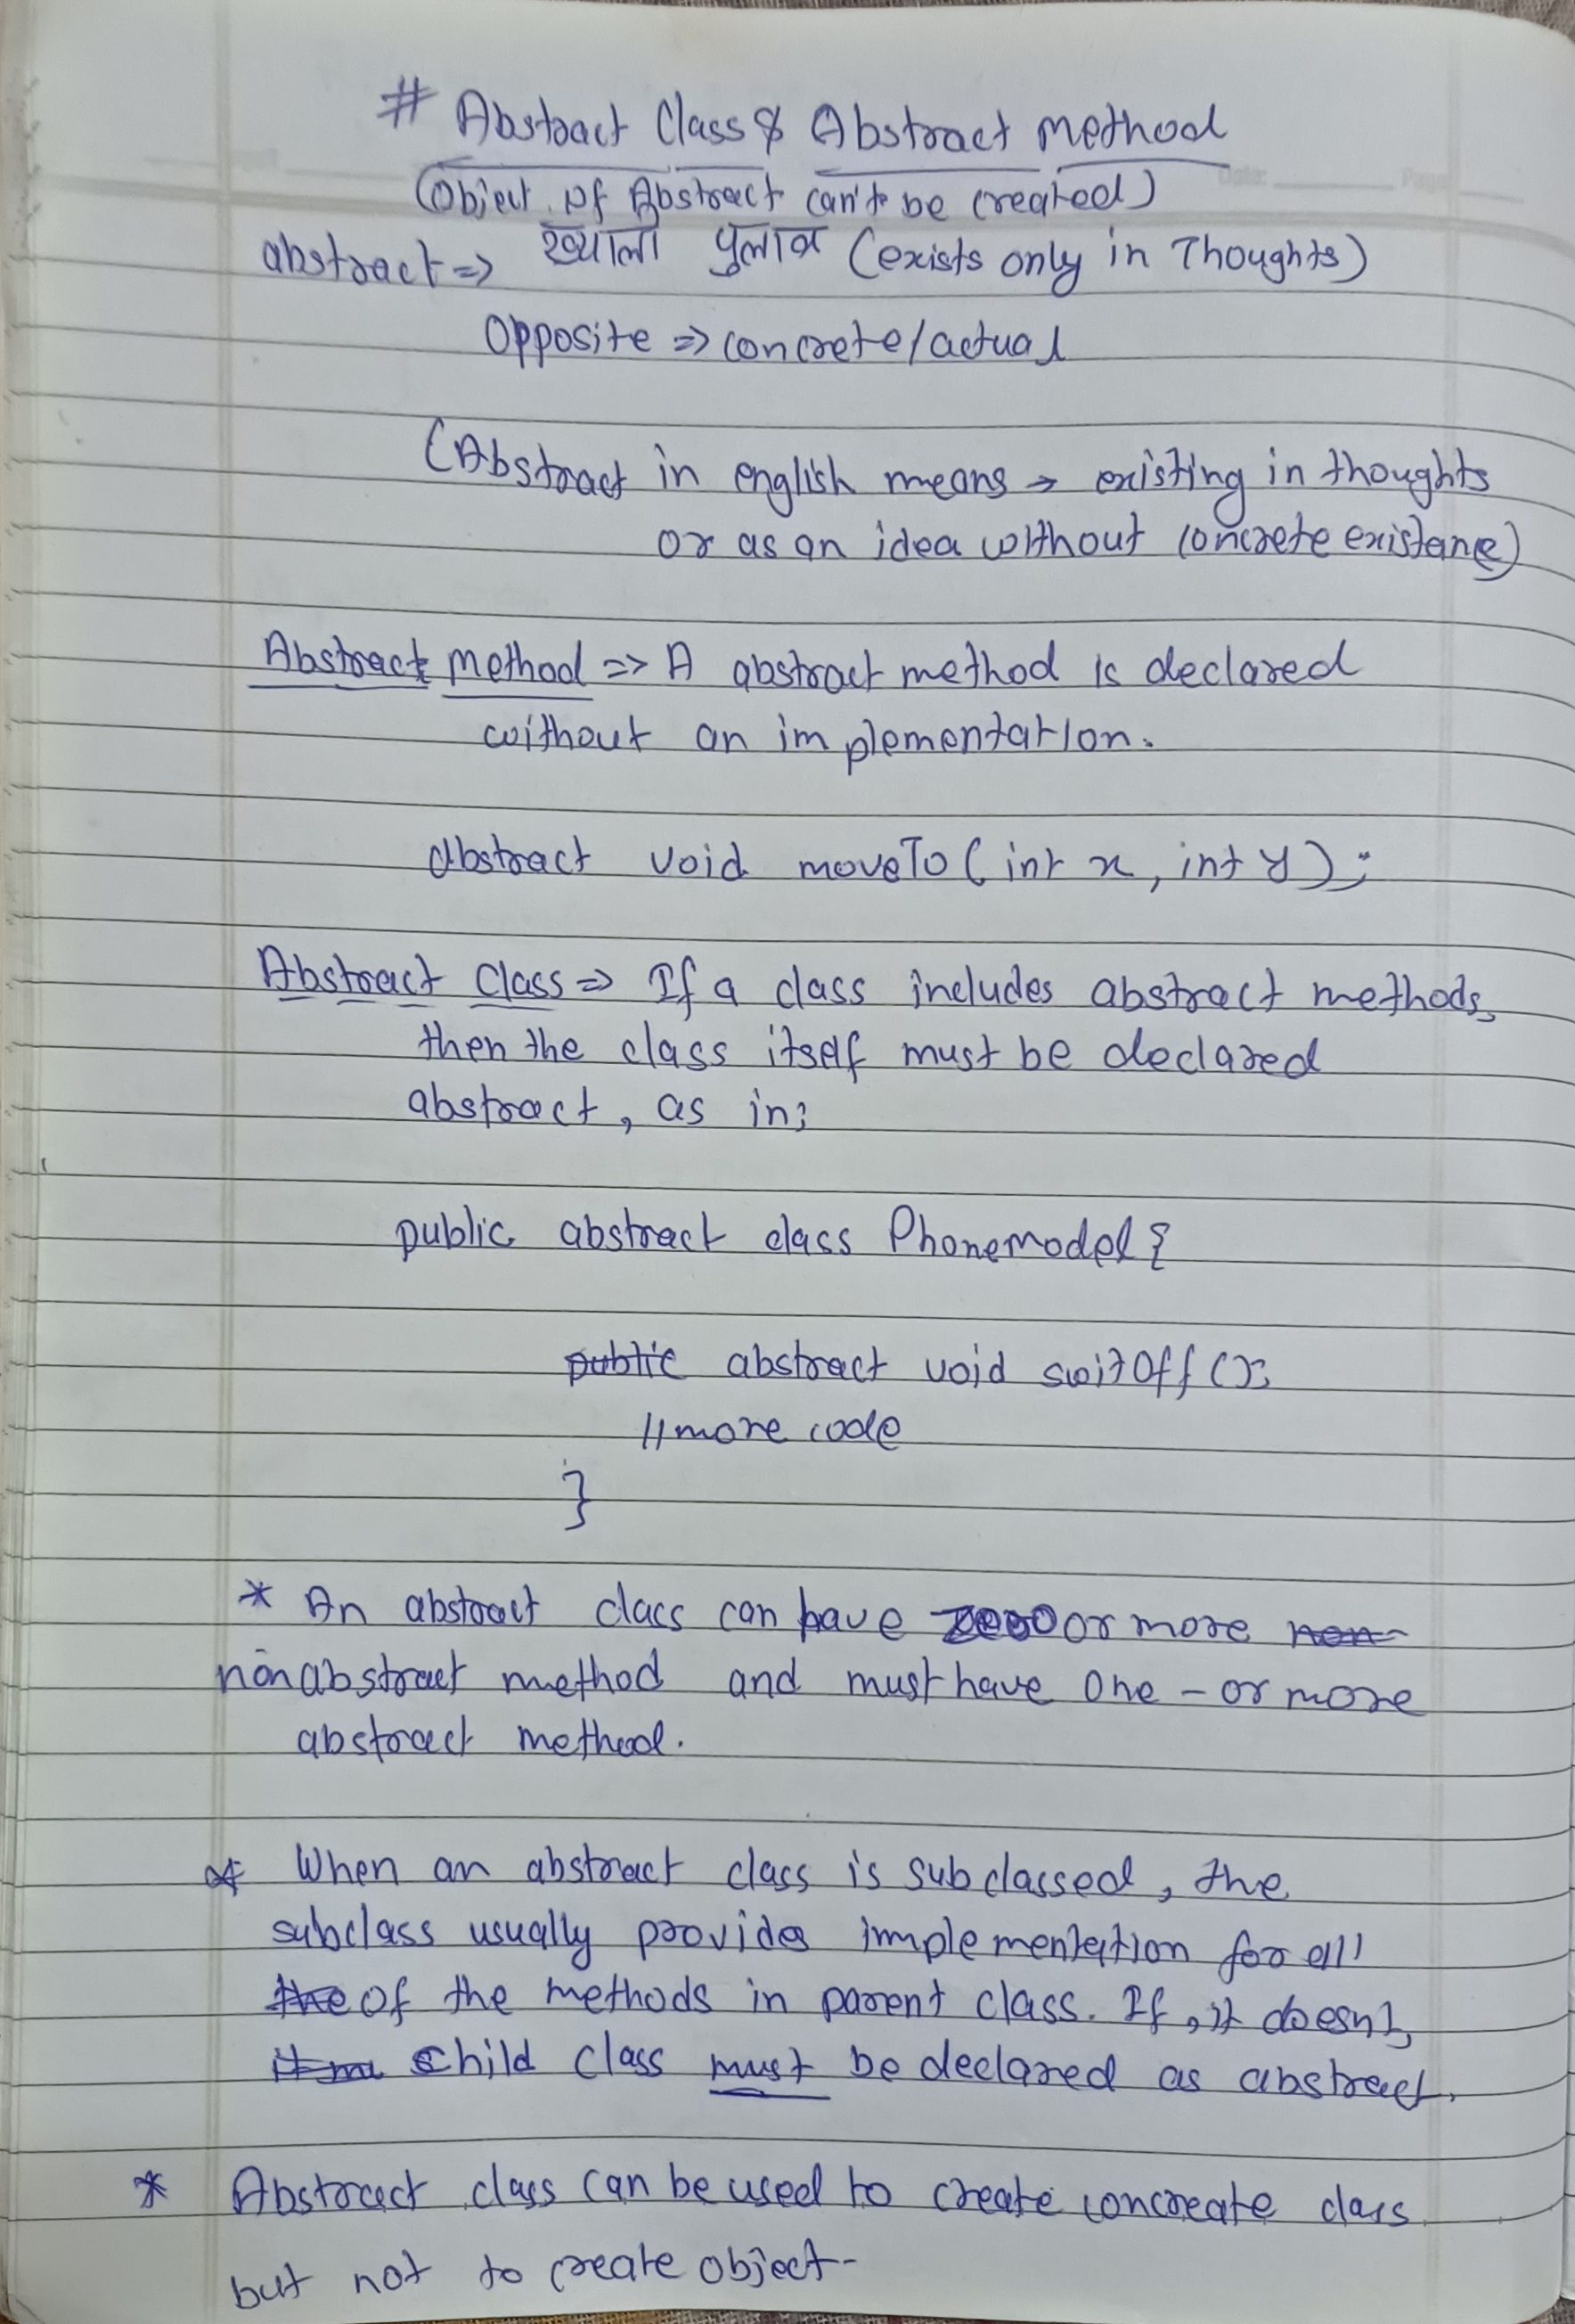 # Abstract Class & Abstract Method
(Object of Abstract can't be created)
abstract => ख्याली पुलाव (exists only in Thoughts)
Opposite => concrete/actual
(Abstract in english means → existing in thoughts
or as an idea without concrete existance)
Abstract Method => A abstract method is declared
without an implementation.
abstract void moveTo (int x, int y);
Abstract Class => If a class includes abstract methods,
then the class itself must be declared
abstract, as in;
public abstract class Phonemodel {
public abstract void switOff ();
// more code
}
* An abstract class can have zero or more non-
non abstract method and must have one - or more
abstract method.
* When an abstract class is subclassed, the
subclass usually provides implementation for all
the of the methods in parent class. If, it doesn't,
it mu Child class must be declared as abstract.
* Abstract class can be used to create concreate class
but not to create object-